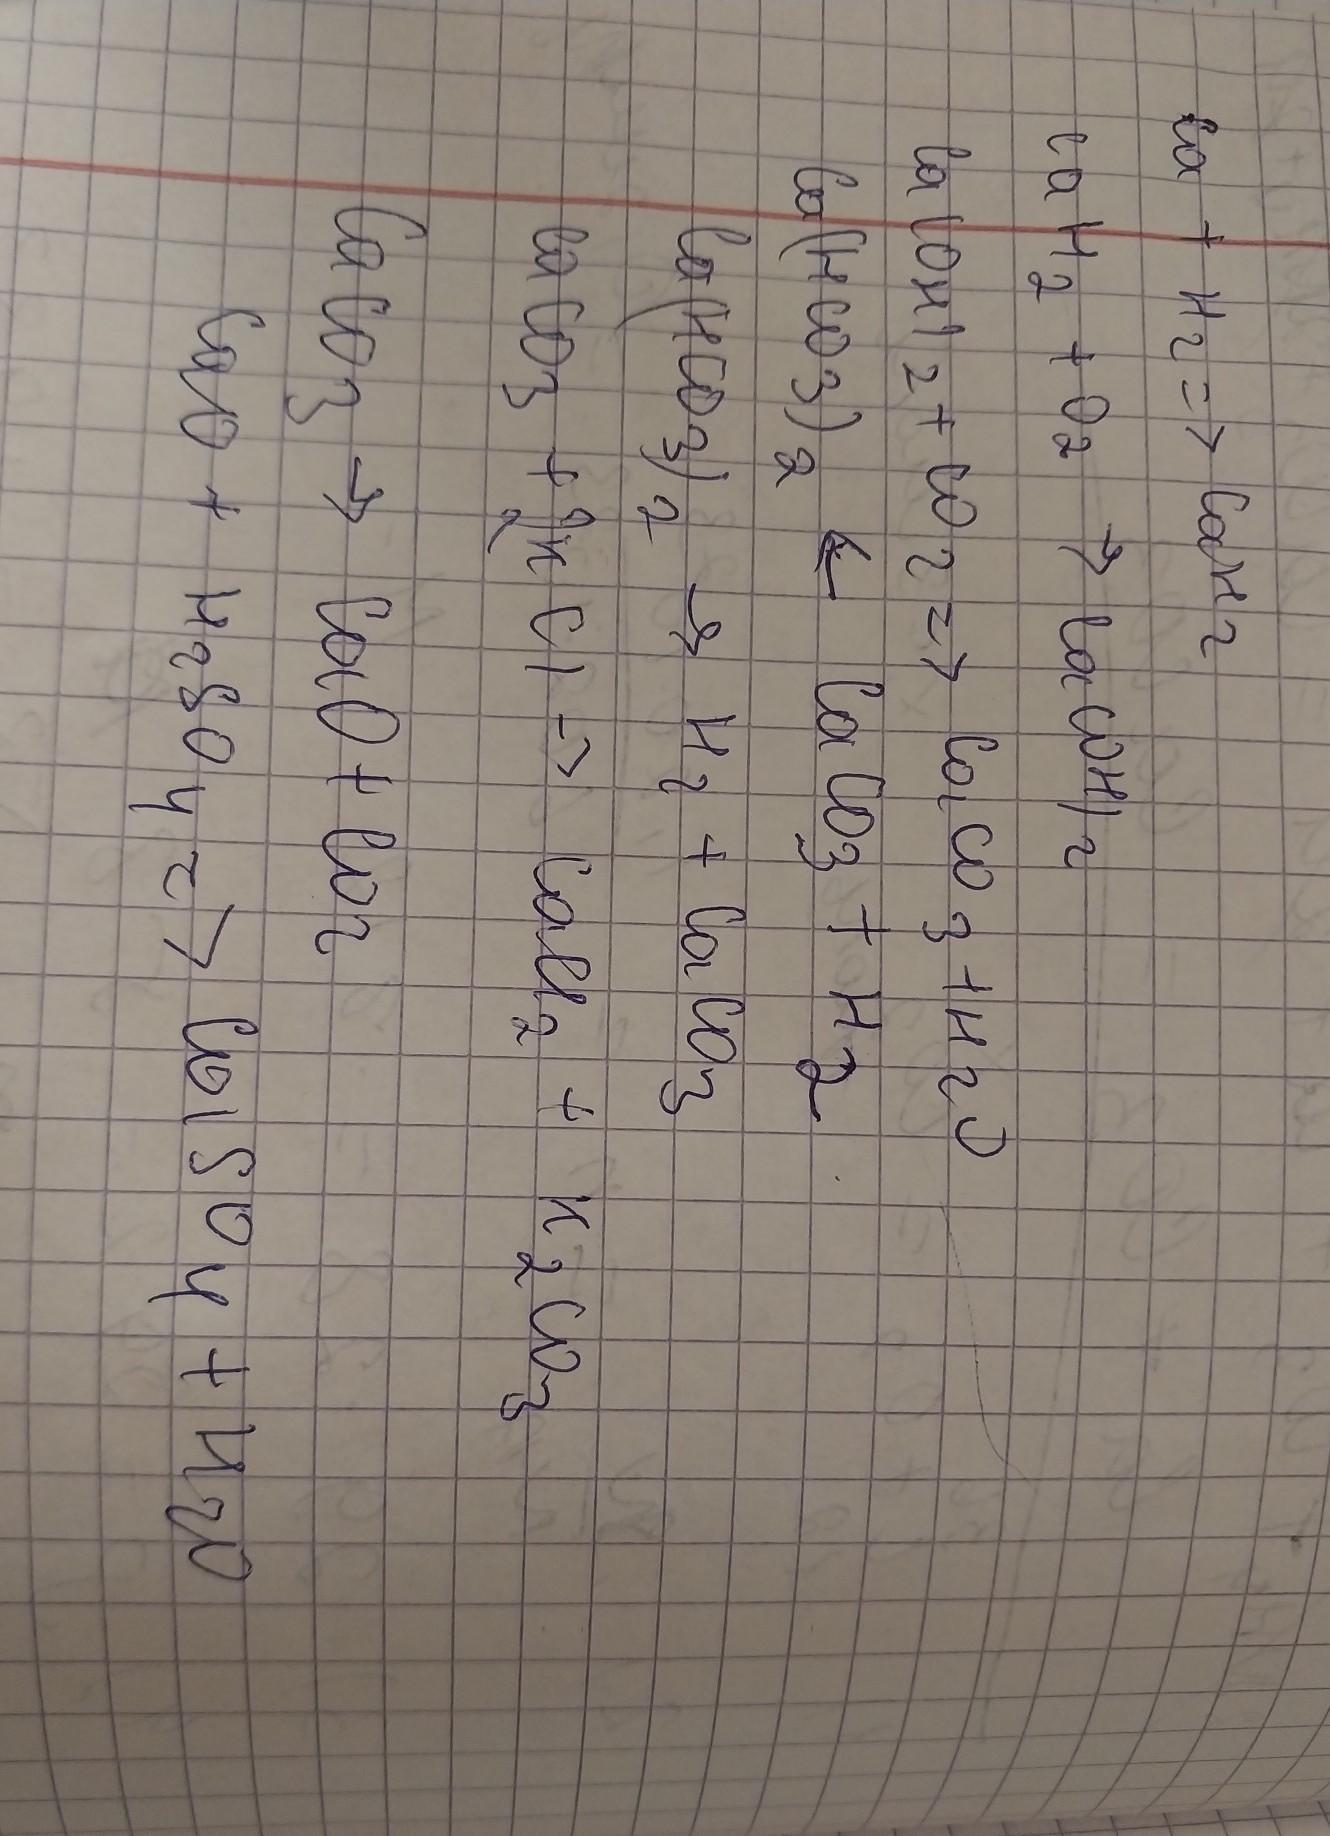 Ca + H2 => CaH2
CaH2 + O2 → Ca(OH)2
Ca(OH)2 + CO2 => CaCO3 + H2O
Ca(HCO3)2 ← CaCO3 + H2
Ca(HCO3)2 → H2 + CaCO3
CaCO3 + 2KCl -> CaCl2 + K2CO3
CaCO3 → CaO + CO2
CaO + H2SO4 => CaSO4 + H2O